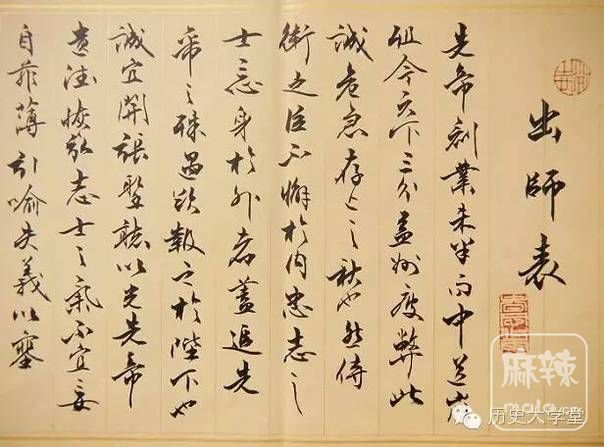 出師表
先帝創業未半而中道崩
殂今天下三分益州疲弊此
誠危急存亡之秋也然侍
衛之臣不懈於内忠志之
士忘身於外者蓋追先
帝之殊遇欲報之於陛下也
誠宜開張聖聽以光先帝
遺德恢弘志士之氣不宜妄
自菲薄引喻失義以塞
麻辣
mala.cn
历史大学堂